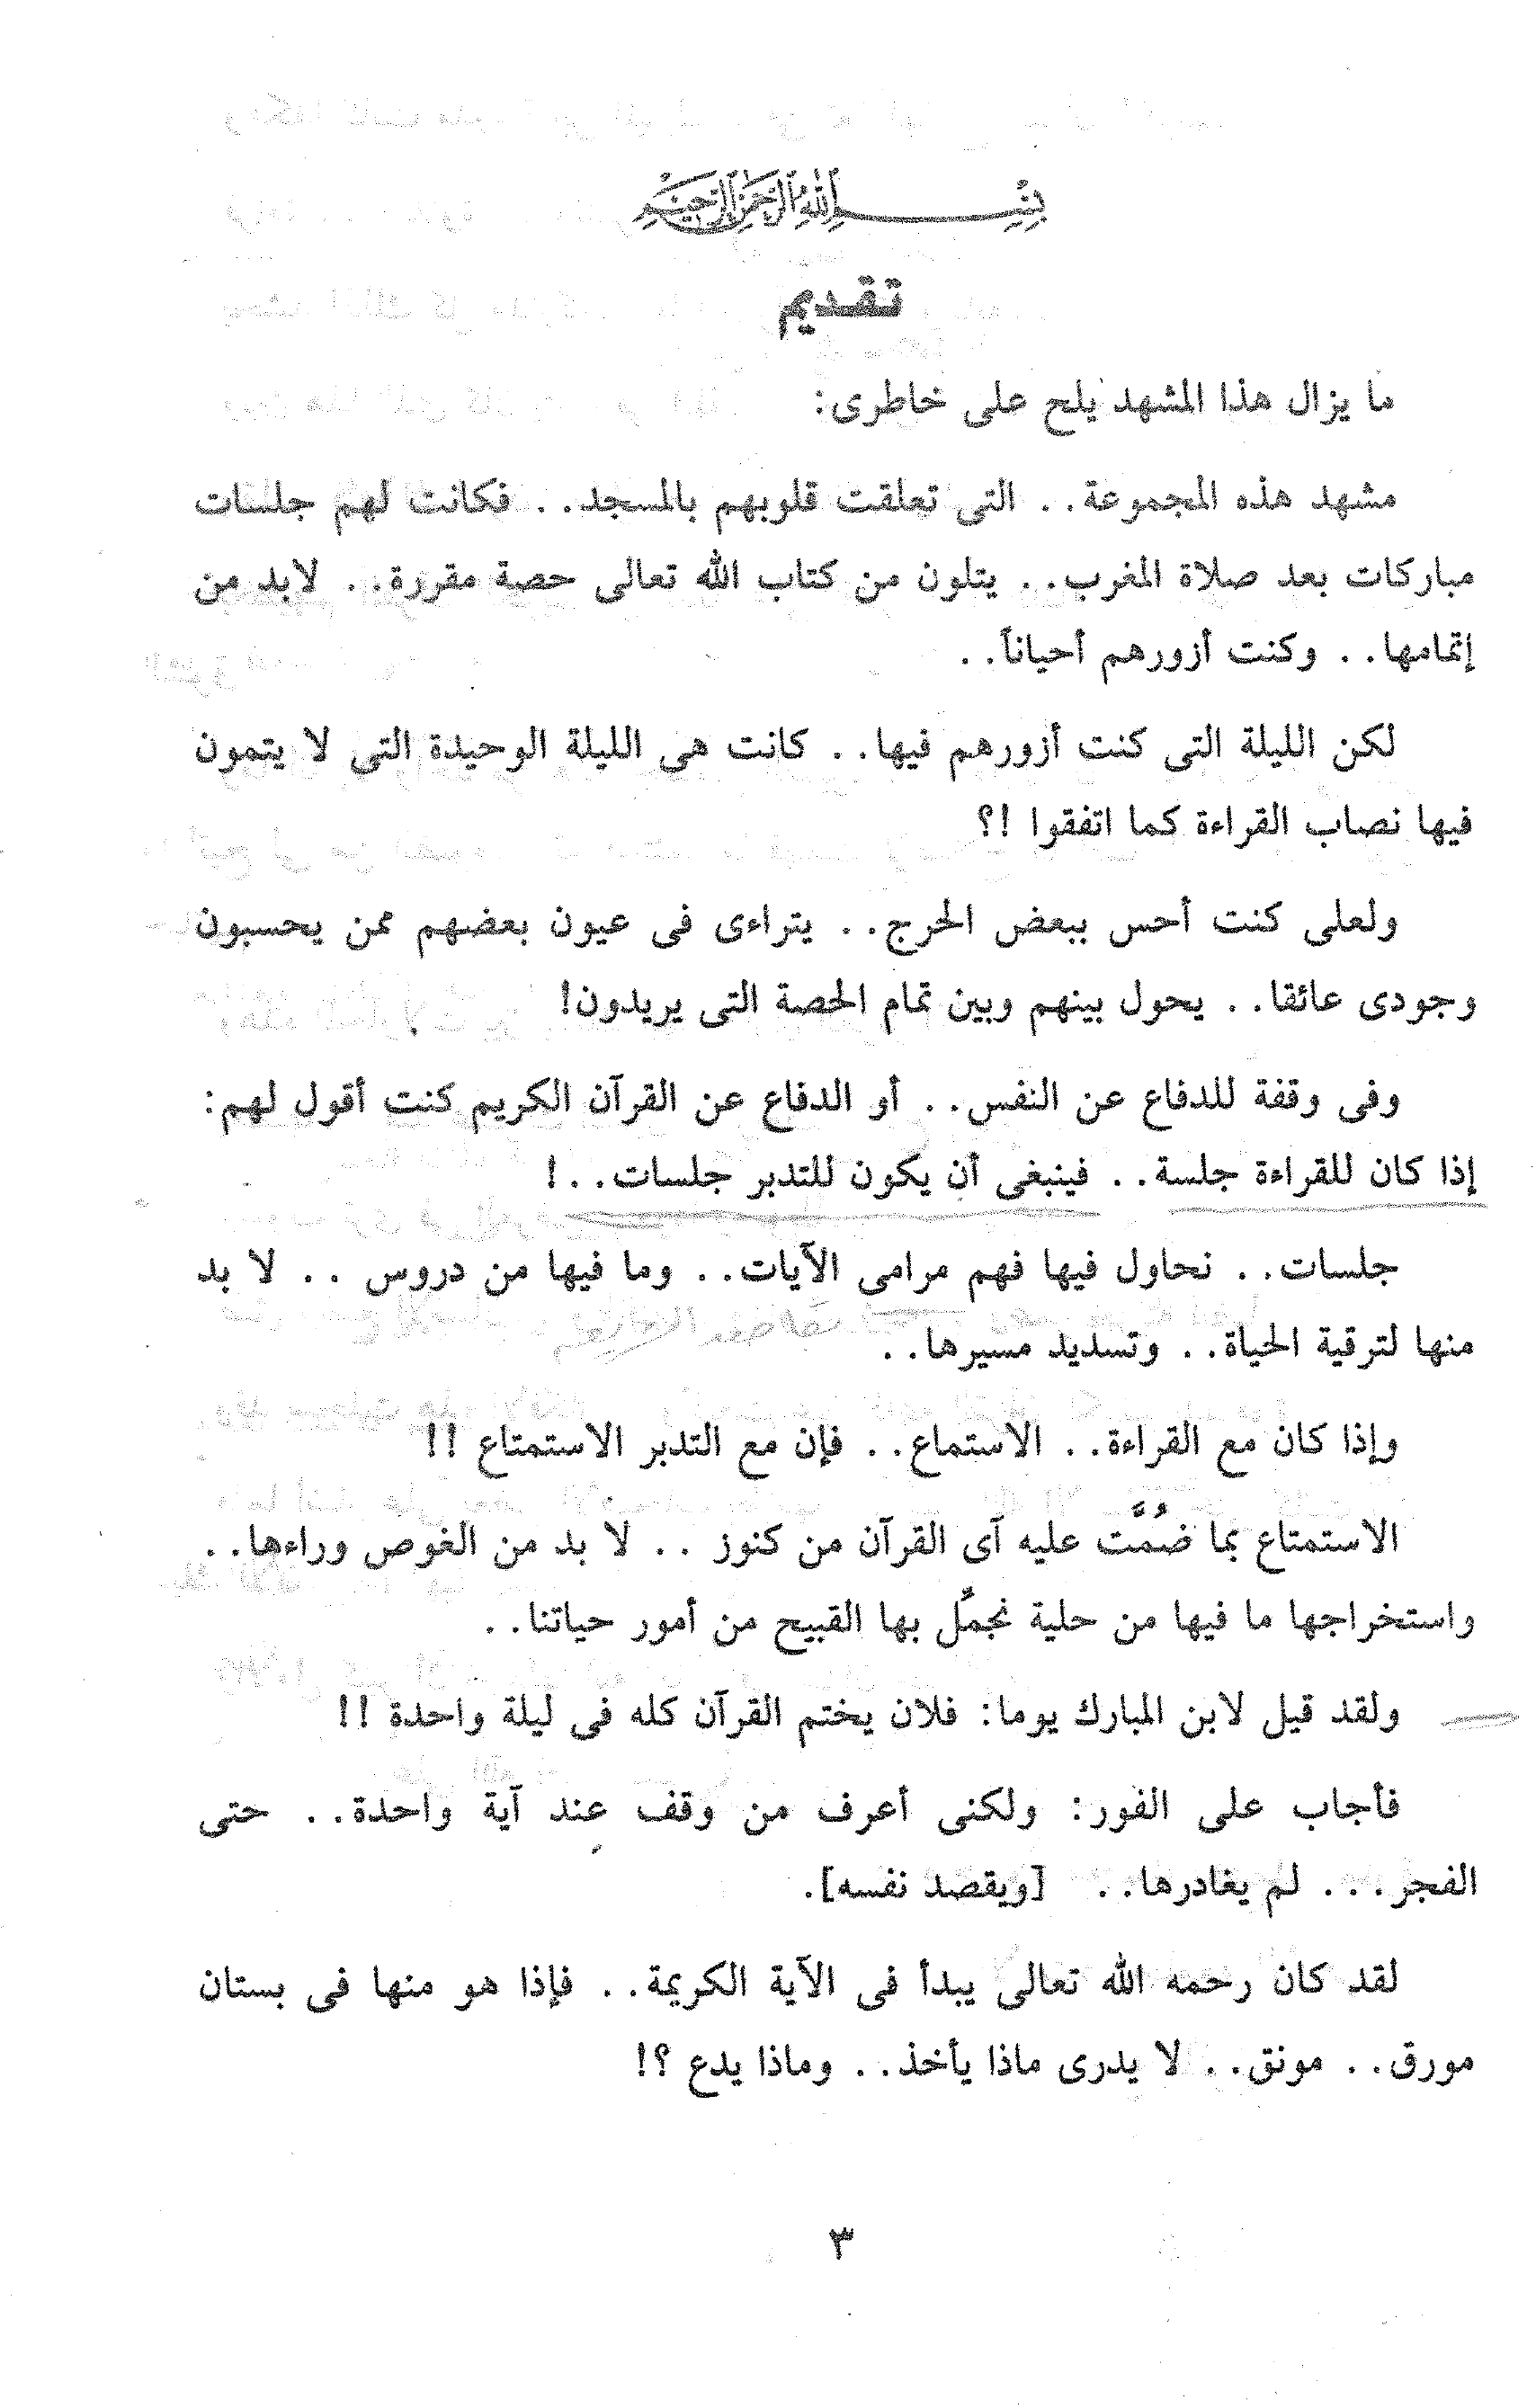 بسم الله الرحمن الرحيم
تقديم
ما يزال هذا المشهد يلح على خاطرى:
مشهد هذه المجموعة.. التى تعلقت قلوبهم بالمسجد.. فكانت لهم جلسات
مباركات بعد صلاة المغرب.. يتلون من كتاب الله تعالى حصة مقررة.. لابد من
إتمامها.. وكنت أزورهم أحياناً..
لكن الليلة التى كنت أزورهم فيها.. كانت هى الليلة الوحيدة التى لا يتمون
فيها نصاب القراءة كما اتفقوا !؟
ولعلى كنت أحس ببعض الحرج.. يتراءى فى عيون بعضهم ممن يحسبون
وجودى عائقا.. يحول بينهم وبين تمام الحصة التى يريدون!
وفى وقفة للدفاع عن النفس.. أو الدفاع عن القرآن الكريم كنت أقول لهم:
إذا كان للقراءة جلسة.. فينبغى أن يكون للتدبر جلسات..!
جلسات.. نحاول فيها فهم مرامى الآيات.. وما فيها من دروس .. لا بد
منها لترقية الحياة.. وتسديد مسيرها..
وإذا كان مع القراءة.. الاستماع.. فإن مع التدبر الاستمتاع !!
الاستمتاع بما ضُمَّت عليه آى القرآن من كنوز .. لا بد من الغوص وراءها..
واستخراجها ما فيها من حلية نجمِّل بها القبيح من أمور حياتنا..
ولقد قيل لابن المبارك يوما: فلان يختم القرآن كله فى ليلة واحدة !!
فأجاب على الفور: ولكنى أعرف من وقف عند آية واحدة.. حتى
الفجر... لم يغادرها.. [ويقصد نفسه].
لقد كان رحمه الله تعالى يبدأ فى الآية الكريمة.. فإذا هو منها فى بستان
مورق.. مونق.. لا يدرى ماذا يأخذ.. وماذا يدع ؟!
٣